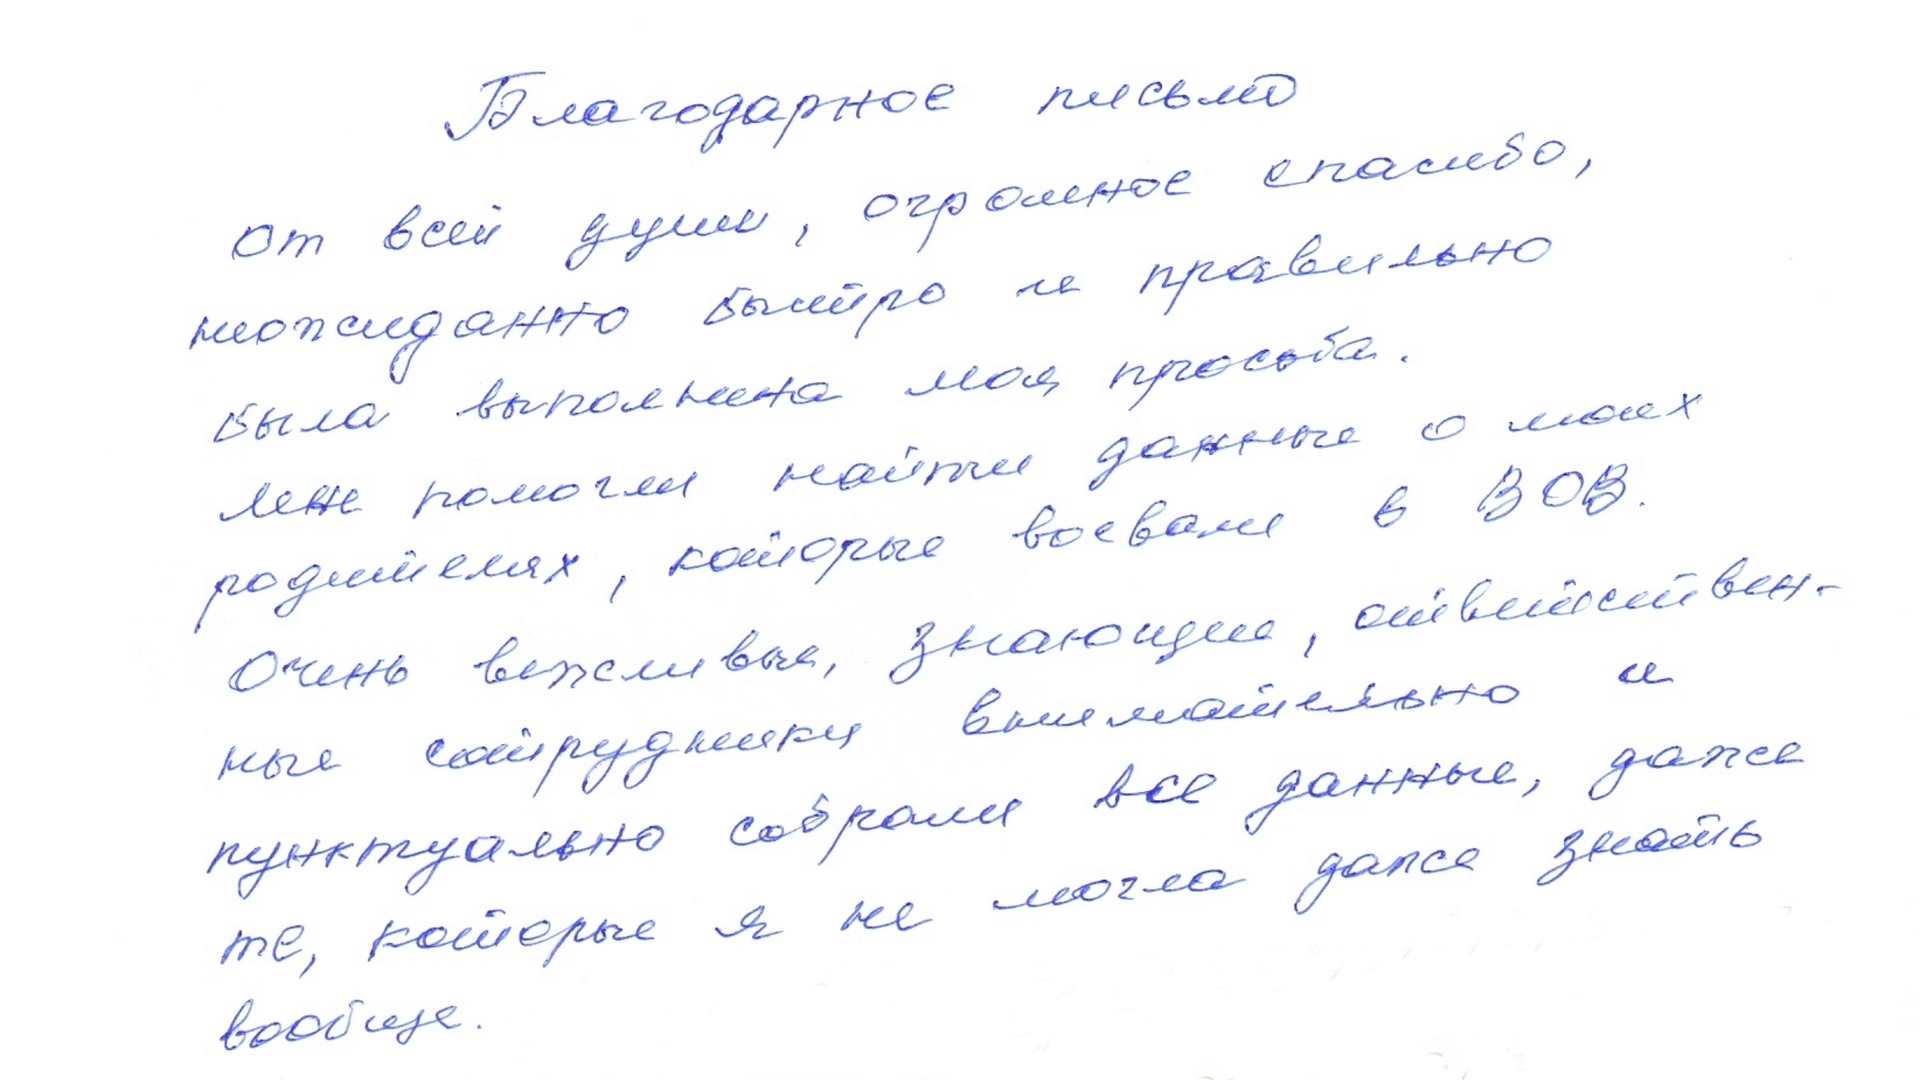 Благодарное письмо
От всей души, огромное спасибо,
неожиданно быстро и правильно
была выполнена моя просьба.
Мне помогли найти данные о моих
родителях, которые воевали в ВОВ.
Очень вежливые, знающие, ответствен-
ные сотрудники внимательно и
пунктуально собрали все данные, даже
те, которые я не могла даже знать
вообще.